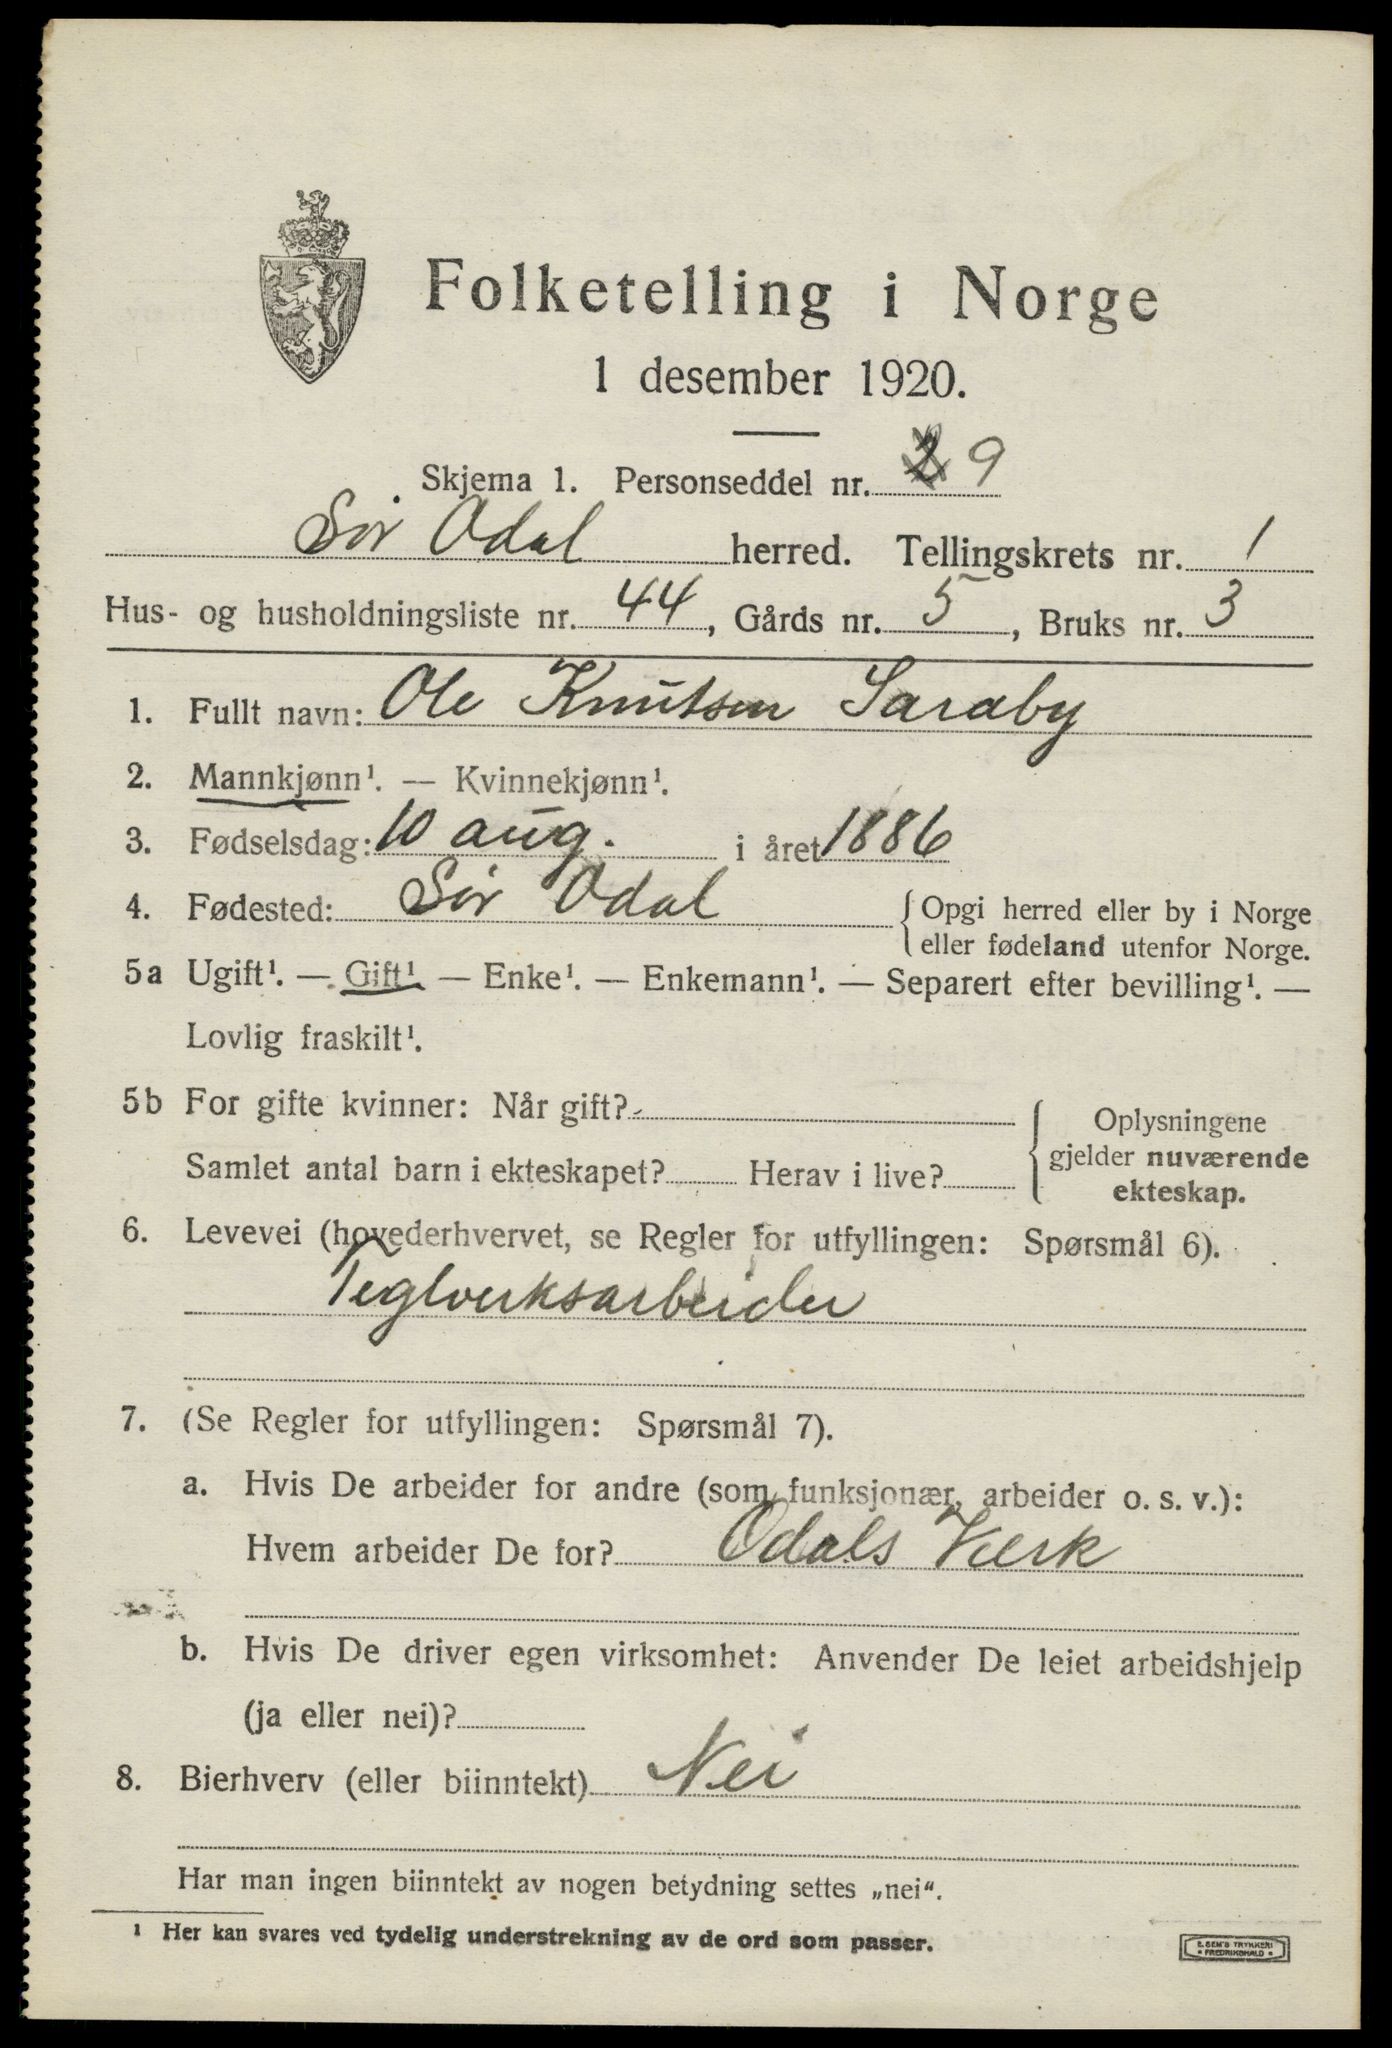 Folketelling i Norge
1 desember 1920.
Skjema 1. Personseddel nr. 9
Sør Odal herred. Tellingskrets nr. 1
Hus- og husholdningsliste nr. 44, Gårds nr. 5, Bruks nr. 3
1. Fullt navn: Ole Knutsen Saraby
2. Mannkjønn¹. — Kvinnekjønn¹.
3. Fødselsdag: 10 aug. i året 1886
4. Fødested: Sør Odal { Opgi herred eller by i Norge
eller fødeland utenfor Norge.
5a Ugift¹. — Gift¹ — Enke¹. — Enkemann¹. — Separert efter bevilling¹. —
Lovlig fraskilt¹.
5b For gifte kvinner: Når gift?
Samlet antal barn i ekteskapet? Herav i live?
Oplysningene
gjelder nuværende
ekteskap.
6. Levevei (hovederhvervet, se Regler for utfyllingen: Spørsmål 6).
Teglverksarbeider
7. (Se Regler for utfyllingen: Spørsmål 7).
a. Hvis De arbeider for andre (som funksjonær, arbeider o. s. v.):
Hvem arbeider De for? Odals Verk
b. Hvis De driver egen virksomhet: Anvender De leiet arbeidshjelp
(ja eller nei)?
8. Bierhverv (eller biinntekt) Nei
Har man ingen biinntekt av nogen betydning settes „nei".
¹ Her kan svares ved tydelig understrekning av de ord som passer.
E. SEM'S TRYKKERI
• FREDRIKSHALD •